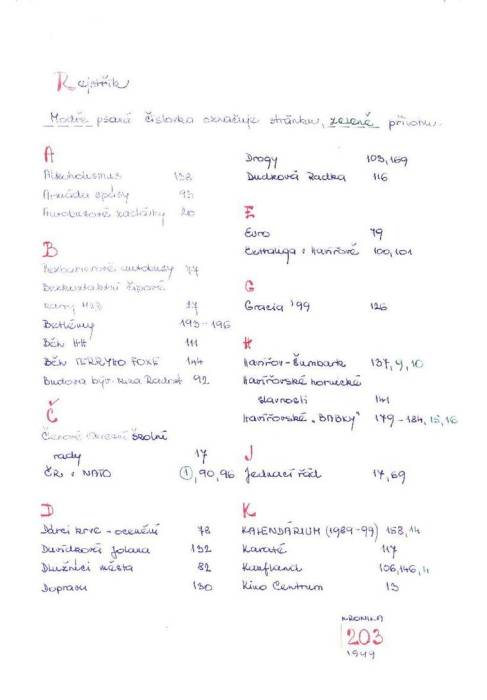 Rejstřík
Modře psaná číslovka označuje stránku, zeleně přílohu.
A
Alkoholismus 138
Armáda spásy 93
Autobusové zastávky 20
B
Bezbariérové autobusy 77
Bezkontaktní čipové
karty MHD 27
Betlémy 193-196
Běh HH 111
Běh TERRYHO FOXE 144
Budova býv. kina Radost 92
Č
Členové školní
rady 17
ČR v NATO 1, 90, 96
D
Dárci krve - ocenění 78
Davídková Jolana 132
Dlužníci města 82
Doprava 130
Drogy 103, 169
Dudková Radka 116
E
Euro 79
v Havířově 100, 101
G
Gracia '99 126
H
Havířov-Šumbark 137, 9, 10
Havířovské hornické
slavnosti 141
Havířovské „BABKY" 179-184, 15, 16
J
Jednací řád 17, 69
K
KALENDÁRIUM (1989-99) 158, 14
Karaté 117
Kaufland 106, 146, 4
Kino Centrum 13
KRONIKA
203
1999